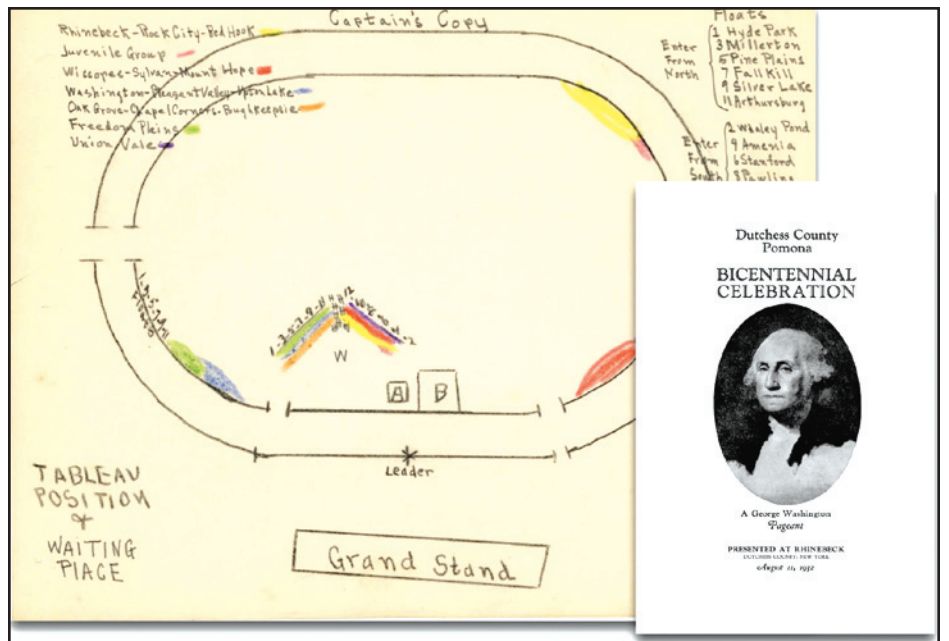 Captain's Copy
Rhinebeck-Rock City-Red Hook
Juvenile Group
Wissopae-Sylvan-Mount Hope
Washington-Pleasant Valley-Upton Lake
Oak Grove-Chapel Corners-Bughkeepsie
Freedom Plains
Union Vale
Floats
Enter From North
1 Hyde Park
3 Millerton
5 Pine Plains
7 Fall Kill
9 Silver Lake
11 Arthursburg
Enter From South
2 Whaley Pond
4 Amenia
6 Stanford
8 Pawling
1-3-5-7-9-11
Floats
1-3-5-7-9-11
12
W
A
B
Leader
TABLEAU
POSITION
+
WAITING
PLACE
Grand Stand
Dutchess County
Pomona
BICENTENNIAL
CELEBRATION
A George Washington
Pageant
PRESENTED AT RHINEBECK
DUTCHESS COUNTY, NEW YORK
August 11, 1932